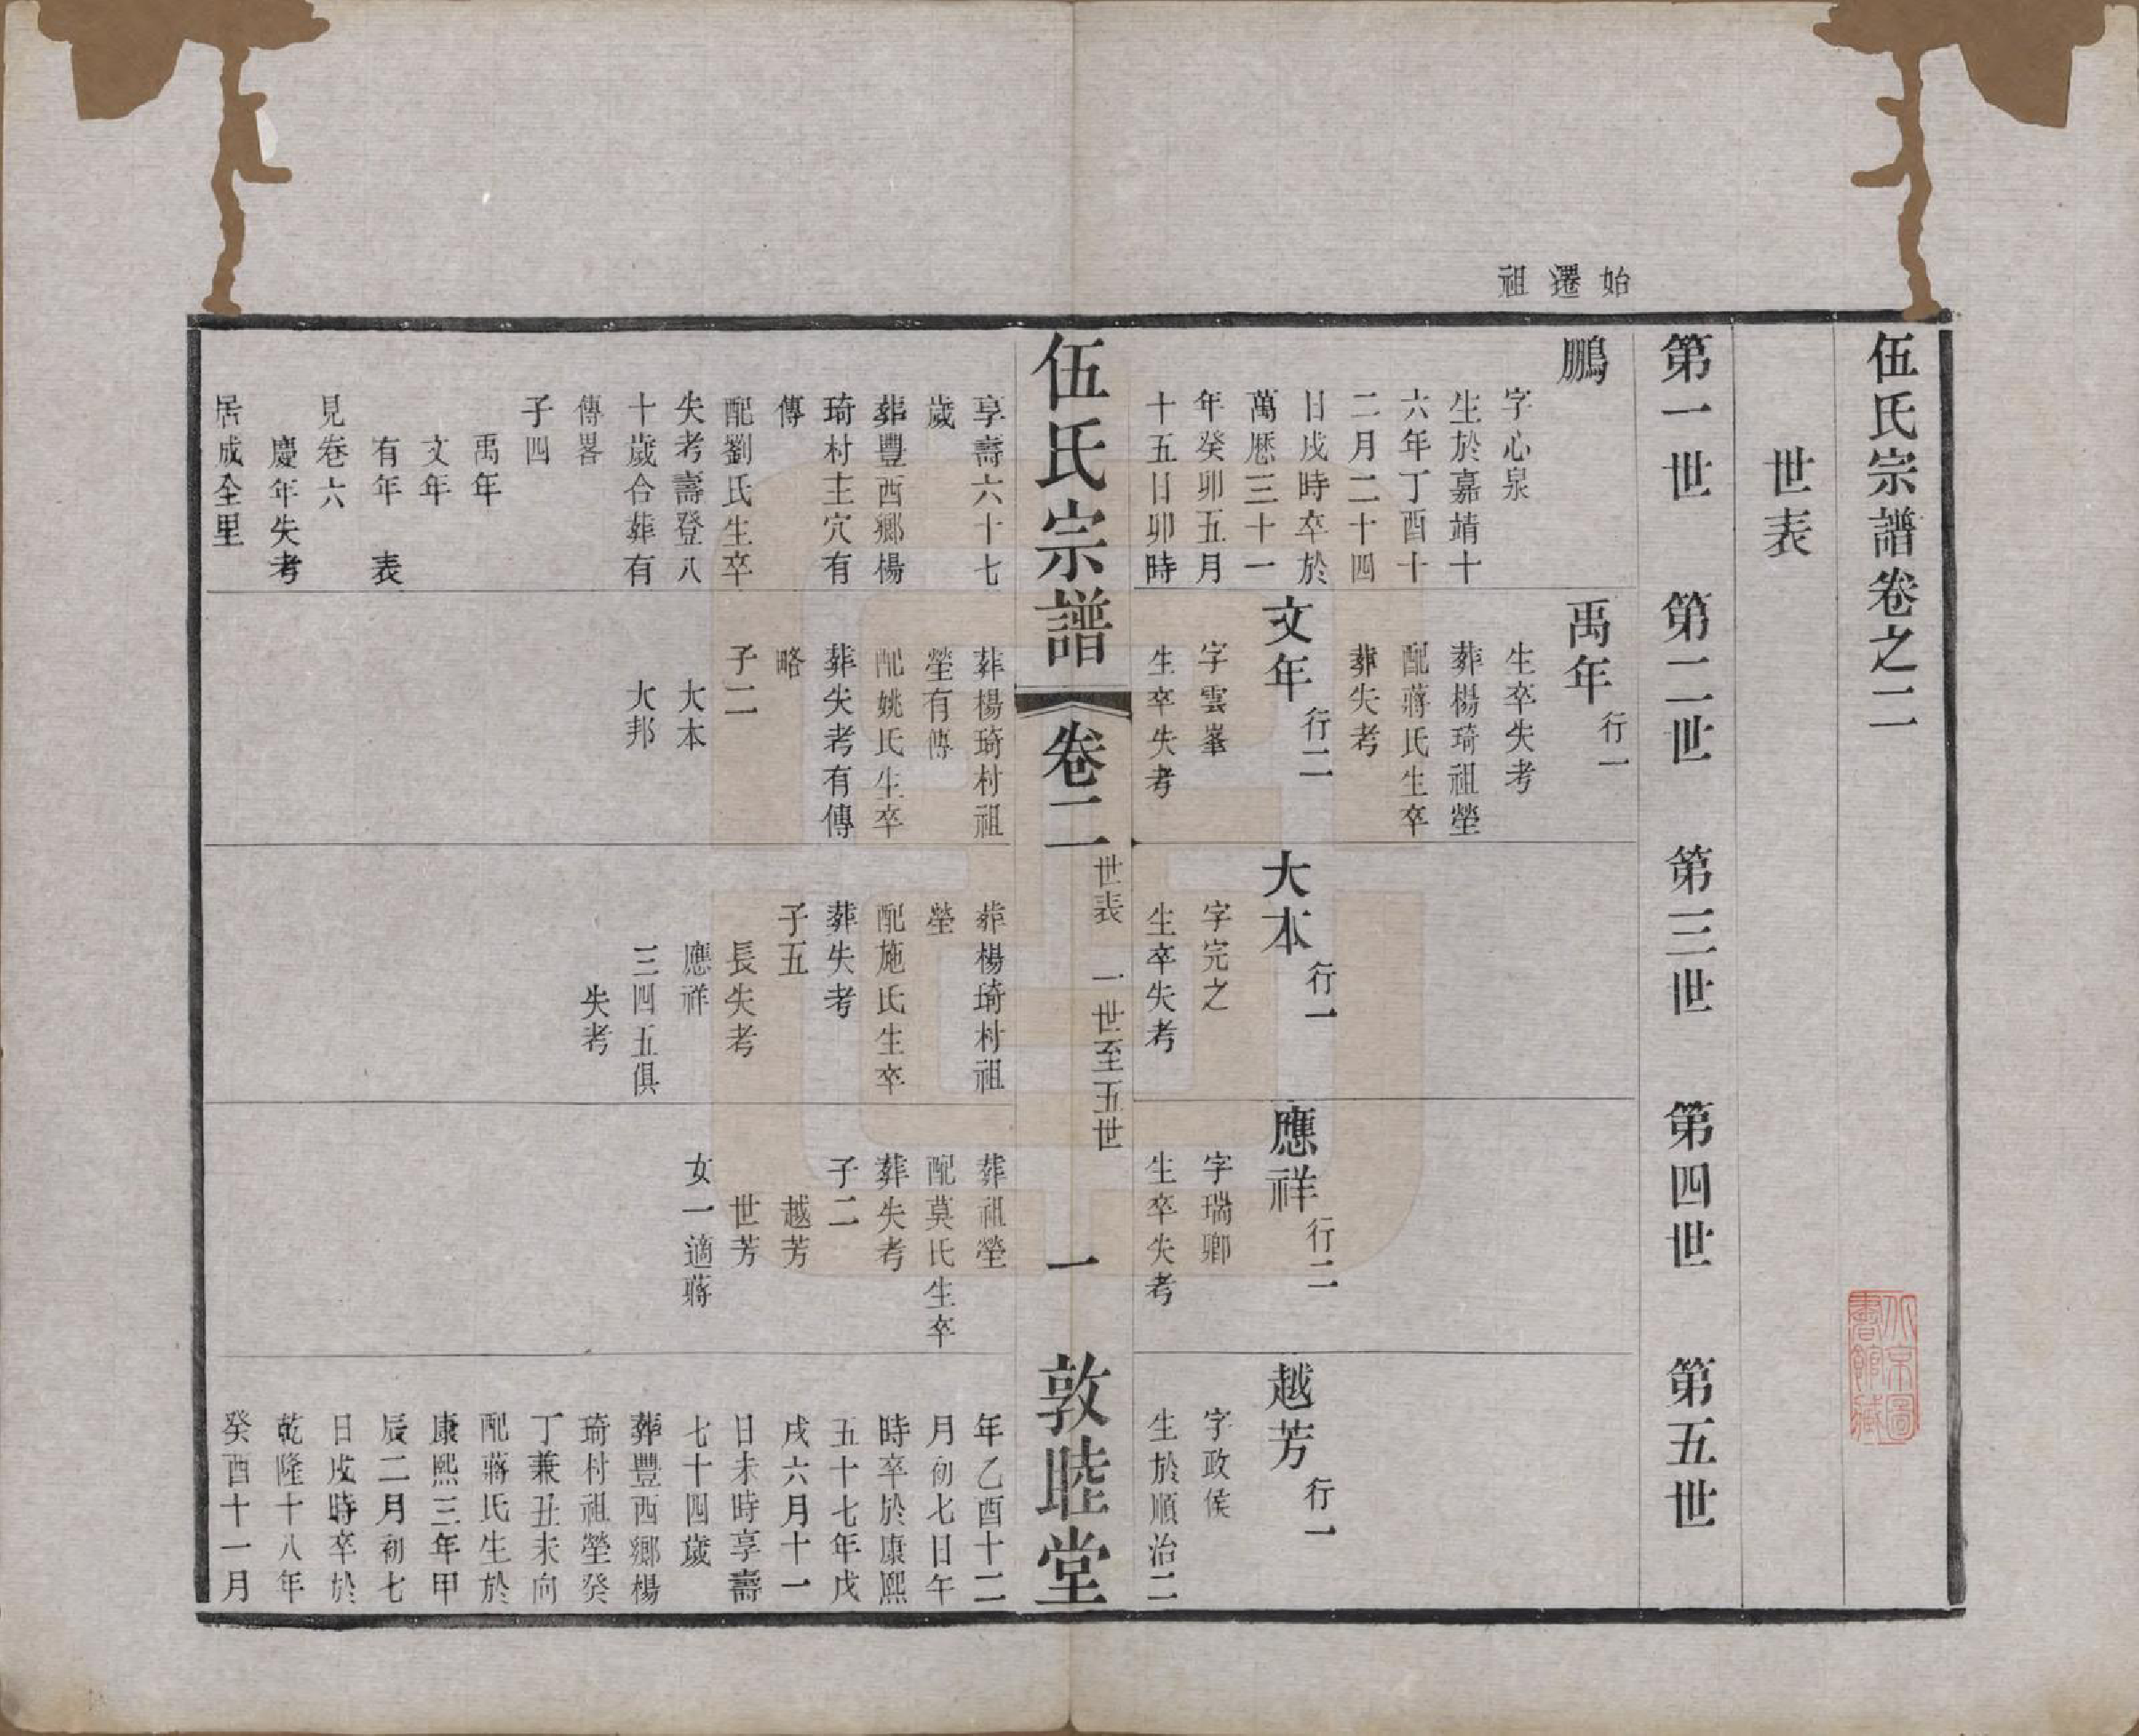 伍氏宗譜卷之二
世表
第一世
第二世
第三世
第四世
第五世
始遷祖
鵬
字心泉
生於嘉靖十
六年丁酉十
二月二十四
日戌時卒於
萬厯三十一
年癸卯五月
十五日卯時
享壽六十七
歲
葬豐西鄉楊
琦村主穴有
傳
配劉氏生卒
失考壽登八
十歲合葬有
傳畧
子四
禹年
文年
有年 表
見卷六
慶年失考
居成全里
禹年 行一
生卒失考
葬楊琦祖塋
配蔣氏生卒
葬失考
文年 行二
字雲峯
生卒失考
葬楊琦村祖
塋有傳
配姚氏生卒
葬失考有傳
略
子二
大本
大邦
大本 行一
字完之
生卒失考
葬楊琦村祖
塋
配施氏生卒
葬失考
子五
長失考
應祥
三四五俱
失考
應祥 行二
字瑞卿
生卒失考
葬祖塋
配莫氏生卒
葬失考
子二
越芳
世芳
女一適蔣
越芳 行一
字政侯
生於順治二
年乙酉十二
月初七日午
時卒於康熙
五十七年戊
戌六月十一
日未時享壽
七十四歲
葬豐西鄉楊
琦村祖塋癸
丁兼丑未向
配蔣氏生於
康熙三年甲
辰二月初七
日戌時卒於
乾隆十八年
癸酉十一月
伍氏宗譜
卷二
世表 一世至五世
一
敦睦堂
北京圖
書館藏